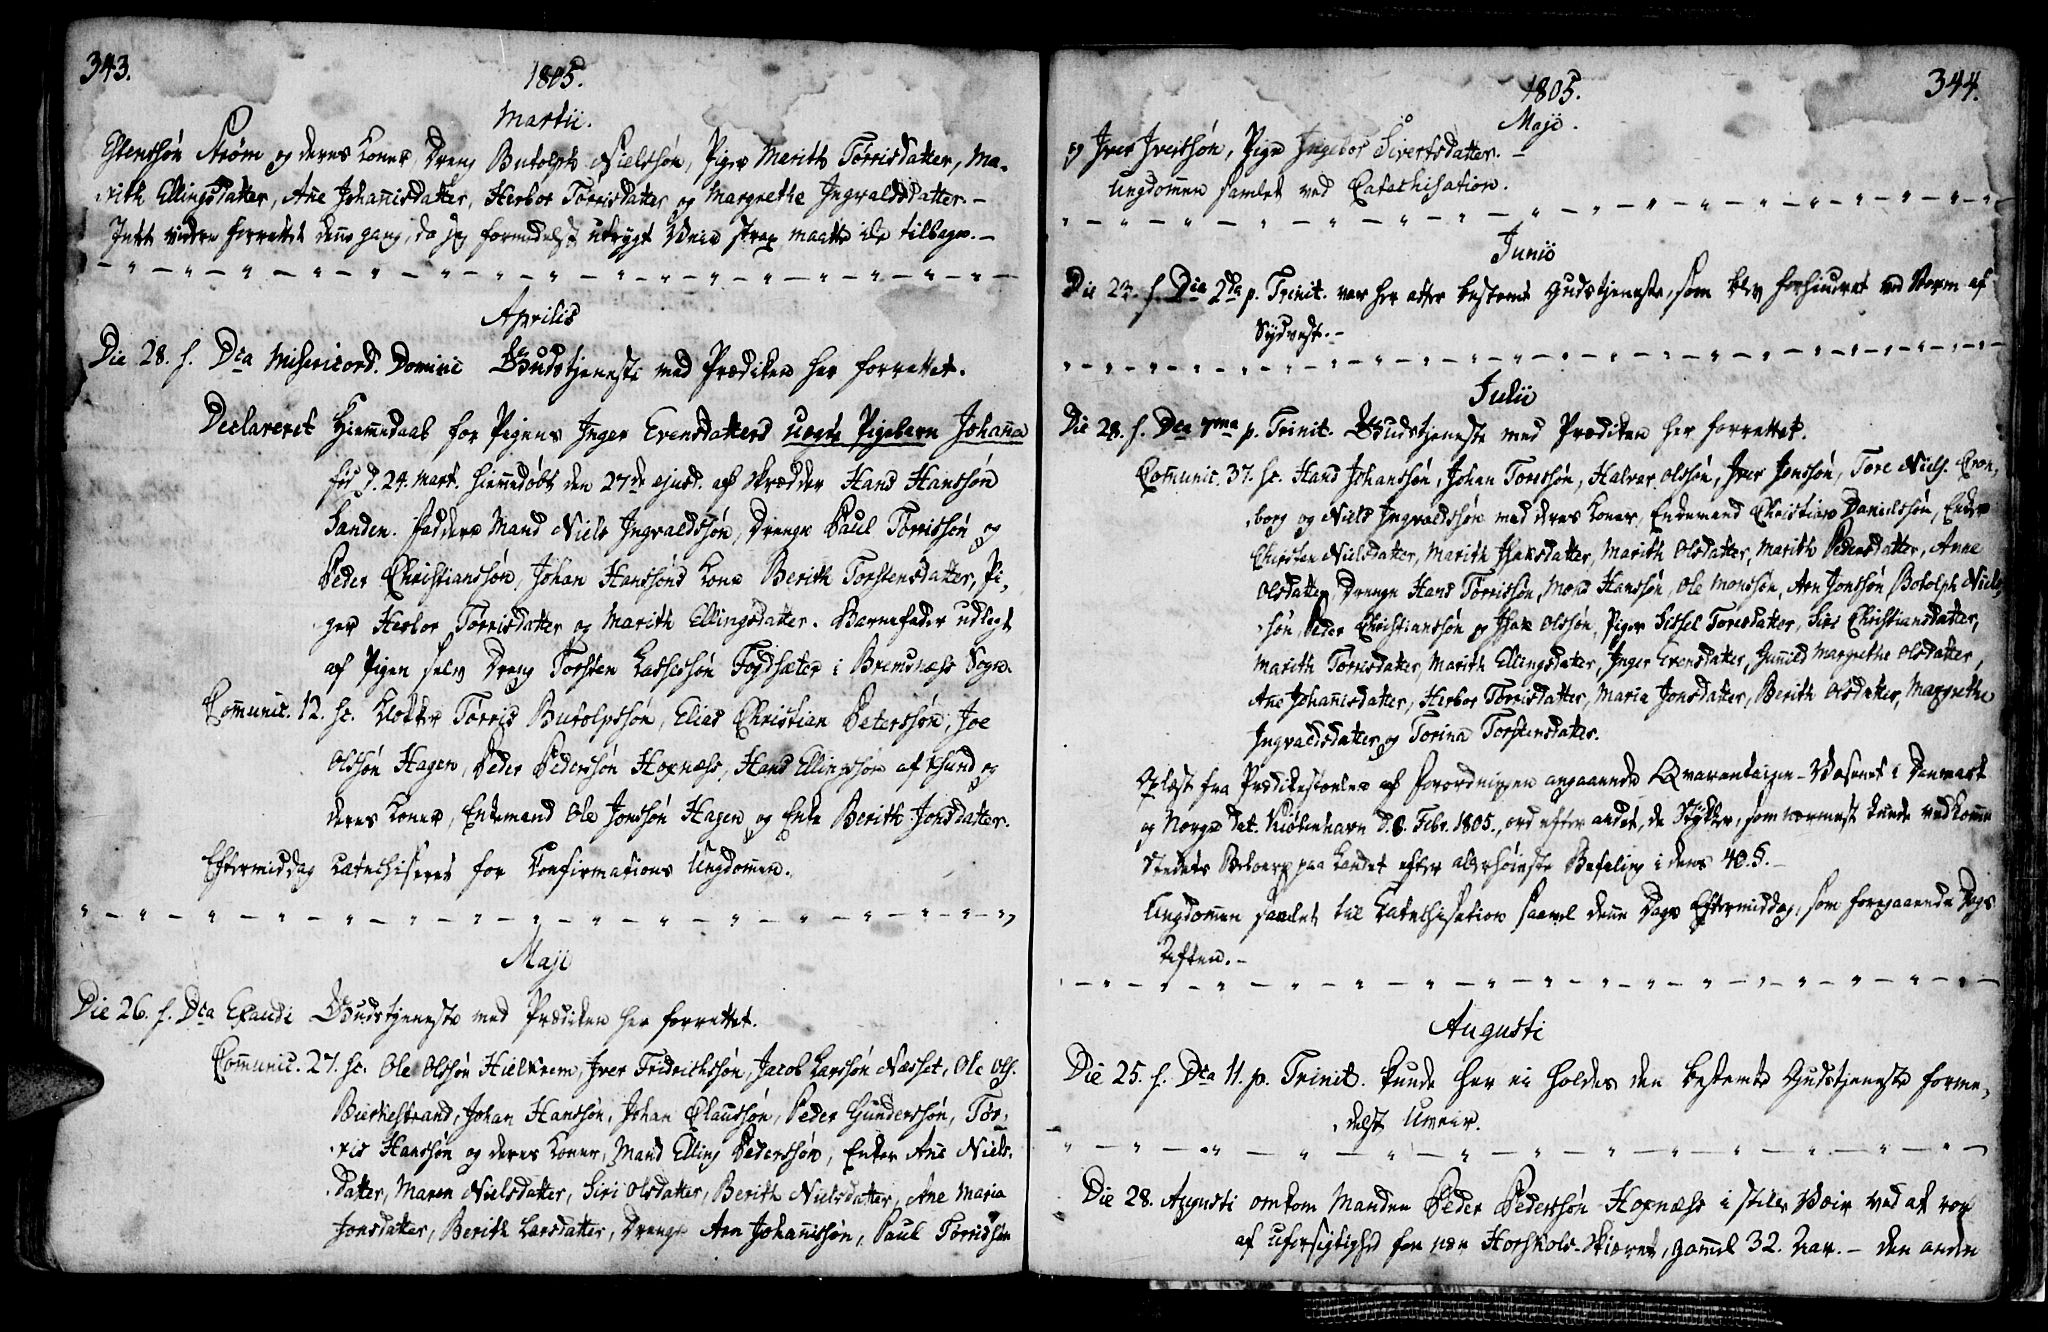 343.
1805.
Martii.
Stensøn Strøm og deres Koner, Dreng Butolph Nielssøn, Piger Merith Tørrisdatter, Ma-
rith Ellingsdatter, Ane Johannisdatter, Herbor Tørrisdatter og Margrethe Ingvaldsdatter.-
Intet videre forrettet denne gang, da jeg formedelst utrygt Veir strax maatte ile tilbage.-
Aprilis
Die 28. h. Dca Misericord. Domini Gudstjeneste med Prædiken her forrettet.
Declareret Hiemmedaab for Pigens Inger Evensdatters uægte Pigebarn Johanna
fød d. 24. Mart. hiemmedøbt den 27de ejusd. af Skrædder Hans Hanssøn
Sanden. Faddere Mand Niels Ingvaldssøn, Drenge Paul Tørrissøn og
Peder Christianssøn, Johan Hanssøns Kone Berith Torstensdatter, Pi-
ger Herbor Tørrisdatter og Marith Ellingsdatter. Barnefader udlagt
af Pigen selv Dreng Torsten Lassessøn Fogdsæter i Bremsnæss Sogn.
Communic. 12. sc. Klokker Tørris Butolpssøn, Elias Christian Peterssøn, Joe
Olssøn Hagen, Peder Pederssøn Hopnæss, Hans Ellingssøn og
deres Koner, Enkemand Ole Jonssøn Hagen og Enke Berith Jonsdatter.
Eftermiddag Catechiseret for Confirmations Ungdommen.
Maji
Die 26. h. Dca Exaudi Gudstjeneste med Prædiken her forrettet.
Communic. 27. sc. Ole Olssøn Hielkrem, Iver Fridrichssøn, Jacob Larssøn Næsset, Ole Ols.
Bierkestrand, Johan Hanssøn, Johan Claussøn, Peder Gunderssøn, Tør-
ris Hanssøn og deres Koner, Mand Elling Pederssøn, Enker Ane Niels-
datter, Maren Nielsdatter, Siri Olsdatter, Berith Nielsdatter, Ane Maria
Jonsdatter, Berith Larsdatter, Drenge Arn Johannissøn, Paul Tørrissøn
344.
1805.
Maji.
og Iver Iverssøn, Pige Ingebor Sivertsdatter.-
Ungdommen samlet ved Catechisation.
Junii
Die 23. h. Dca 2da p. Trinit. var her atter bestemt Gudstjeneste, som blev forhindret ved Storm af
Sydvest.-
Julii
Die 28. h. Dca 7ma p. Trinit. Gudstjeneste med Prædiken her forrettet.
Communic. 37. sc. Hans Johanssøn, Johan Toressøn, Halvar Olssøn, Iver Jonssøn, Tore Niels.
borg og Niels Ingvaldssøn med deres Koner, Enkemand Christian Danielssøn, Enker
Christen Nielsdatter, Marith Isaksdatter, Marith Olsdatter, Marith Pedersdatter, Anne
Olsdatter, Drenge Hans Tørrissøn, Mons Hanssøn, Ole Monssøn, Arn Jonssøn, Botolph Niels-
søn, Peder Christianssøn og Isak Olssøn, Piger Sissel Toresdatter, Siri Christiansdatter,
Marith Tørrisdatter, Marith Ellingsdatter, Inger Evensdatter, Gunild Margrethe Olsdatter,
Ane Johannisdatter, Herbor Tørrisdatter, Maria Jonsdatter, Berith Olsdatter, Margrethe
Ingvaldsdatter og Torina Torstensdatter.
Oplæst fra Prædikestolen af Forordningen angaaende Qvarantaine-Væsenet i Danmark
og Norge dat. Kiøbenhavn d. 8. Febr. 1805., ord efter andet, de Stykker, som nærmest kunde vedkomme
Stedets paa Landet efter allerhøieste Befaling i dens 40. §.-
Ungdommen samlet til Catechisation saavel denne Dags Eftermiddag, som foregaaende Dags
Aften.-
Augusti
Die 25. h. Dca 11. p. Trinit. kunde her ei holdes den bestemte Gudstjeneste forme-
delst Uveir.
Die 28. Augusti omkom Manden Peder Pederssøn Hopnæss i stille Veir ved at roe
af uforsigtighed for nær Skiæret, gammel 32. Aar.- Den anden